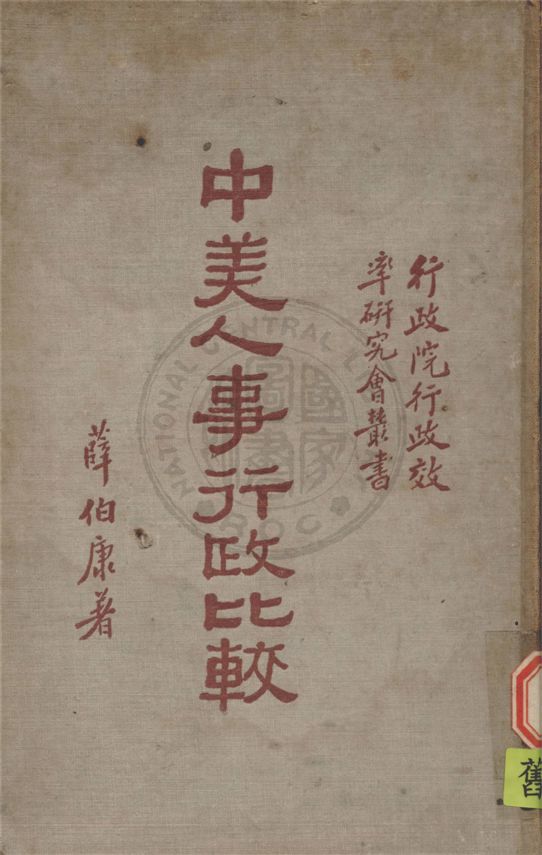 行政院行政效
率研究會叢書
中美人事行政比較
薛伯康著
NATIONAL CENTRAL L
國家圖書
ROC
舊